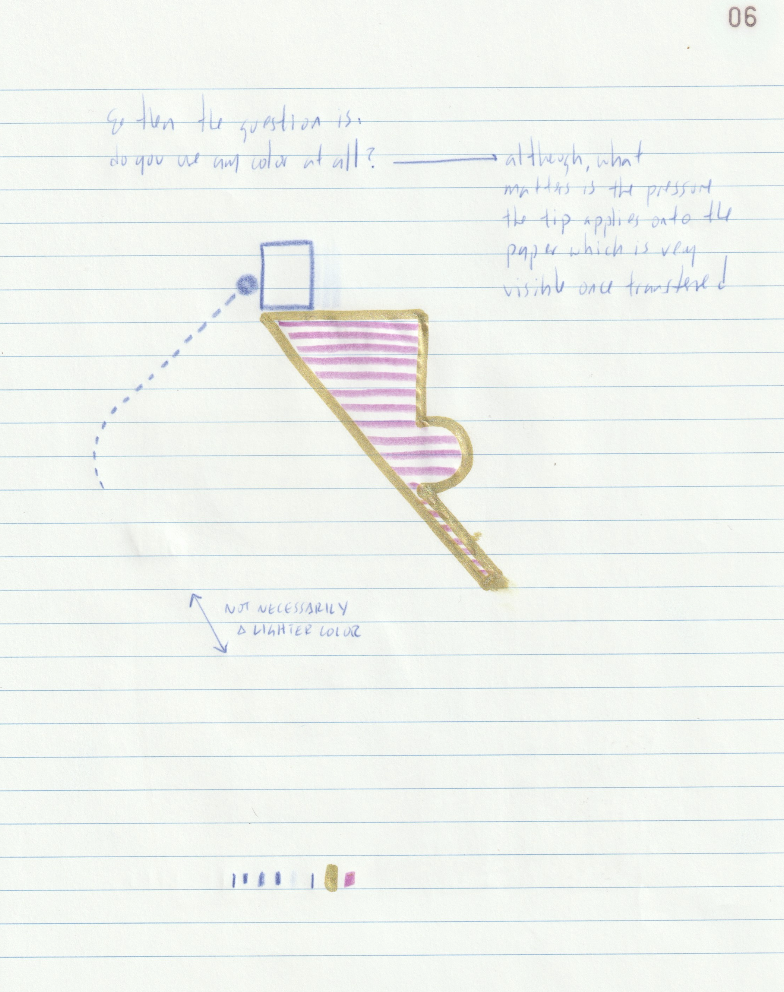 06
So then the question is:
do you use any color at all?
although, what
matters is the pressure
the tip applies onto the
paper which is very
visible once transfered
NOT NECESSARILY
A LIGHTER COLOR